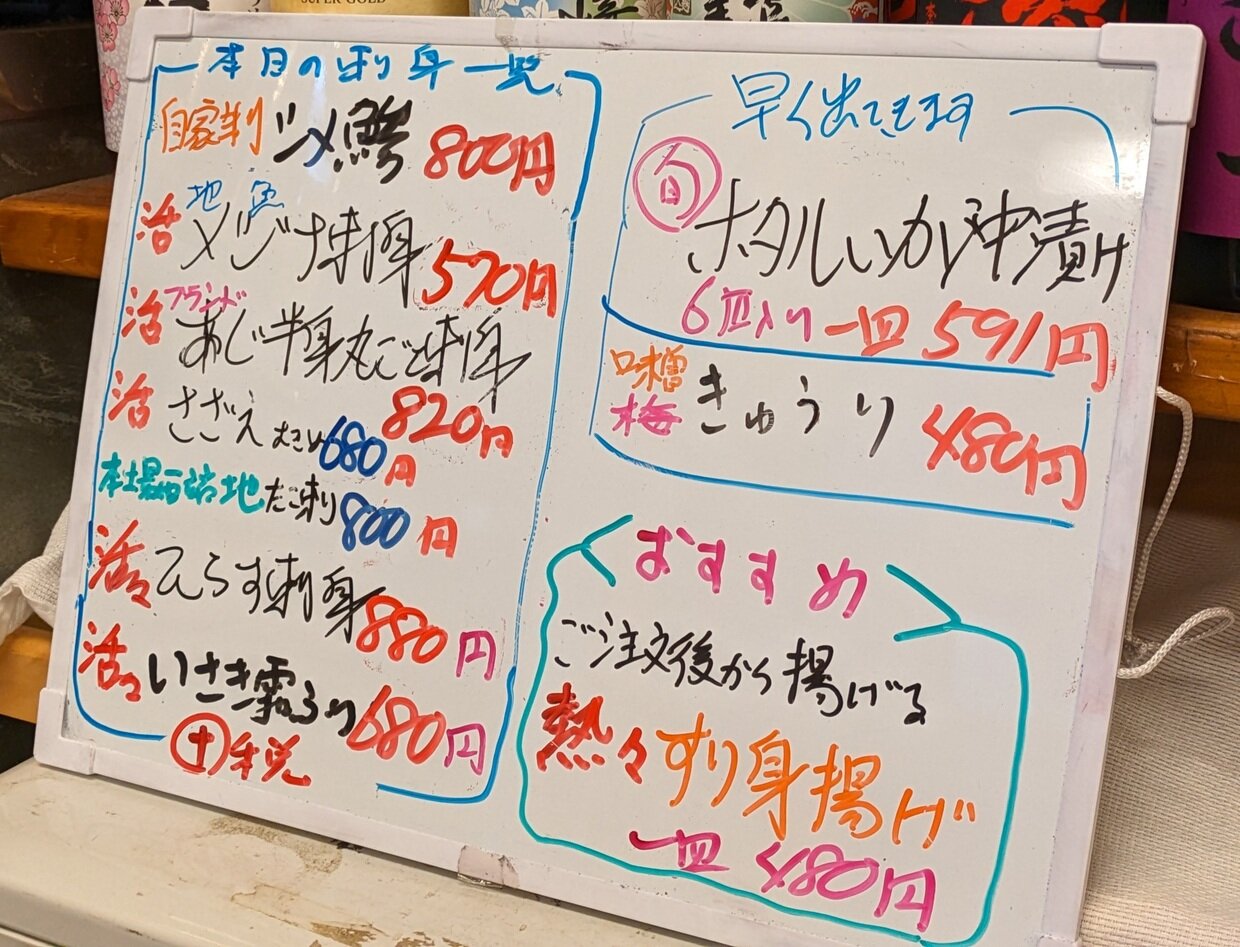 SUPER GOLD
本日の刺身一覧
自家 シメ鯵 800円
地魚
活 メジナ刺身 570円
ブランド
活 あじ半身丸ごと刺身
820円
活 さざえ 680円
本場 たこ刺り 800円
活〆ひらす刺身 880円
活〆いさき霜ふり 680円
+税
早く出てきます
旬 ホタルいか沖漬け
6匹入り 一皿 591円
味噌
梅 きゅうり 480円
おすすめ
ご注文後から揚げる
熱々すり身揚げ
一皿 480円